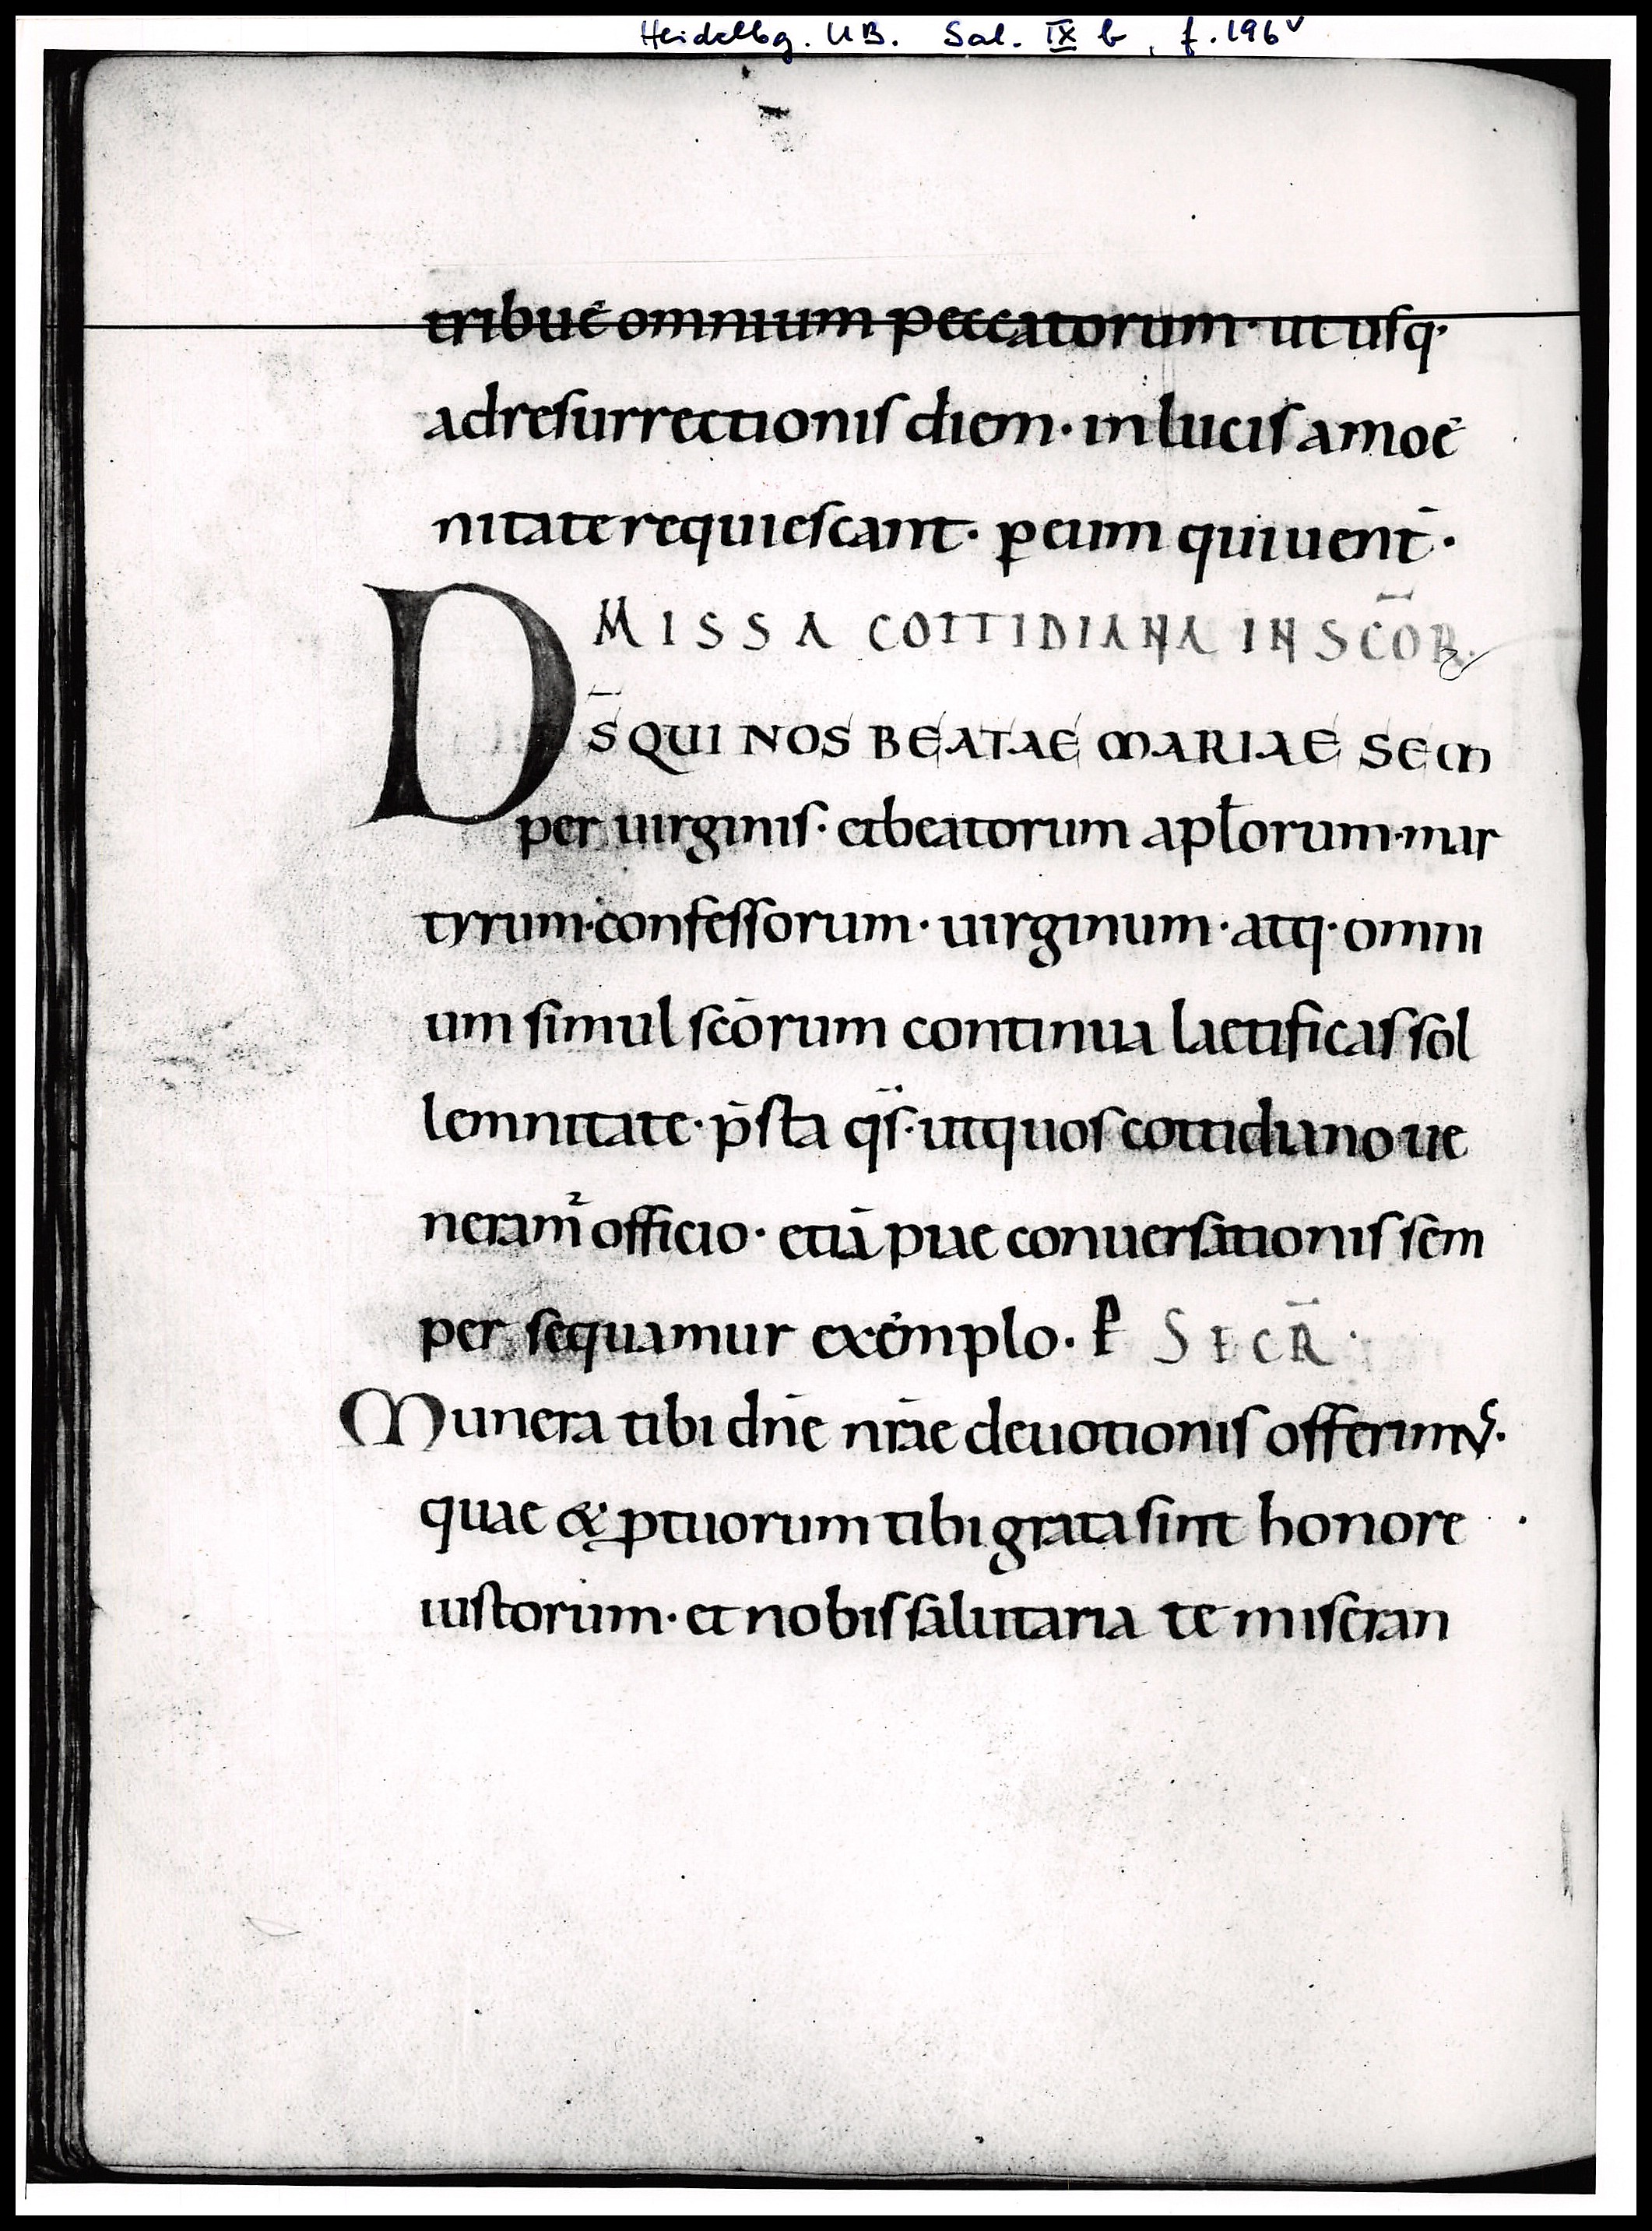 Heidelbg. UB. Sal. IX b, f. 196v
tribue omnium peccatorum· ut usq·
ad resurrectionis diem· in lucis amoe
nitate requiescant· ꝑ eum qui uent̄·
MISSA COTTIDIANA IN SC̄OR̄·
DS̄ QUI NOS BEATAE MARIAE SEM
per uirginis· et beatorum apl̄orum· mar
tyrum· confessorum· uirginum· atq· omni
um simul sc̄orum continua laetificas sol
lemnitate· p̄sta q̄s· ut quos cottidiano ue
neram² officio· etiā piae conuersationis sem
per sequamur exemplo· P SECR̄·
Munera tibi dn̄e nr̄ae deuotionis offerimus·
quae & ꝓ tuorum tibi grata sint honore
iustorum· et nobis salutaria te miseran